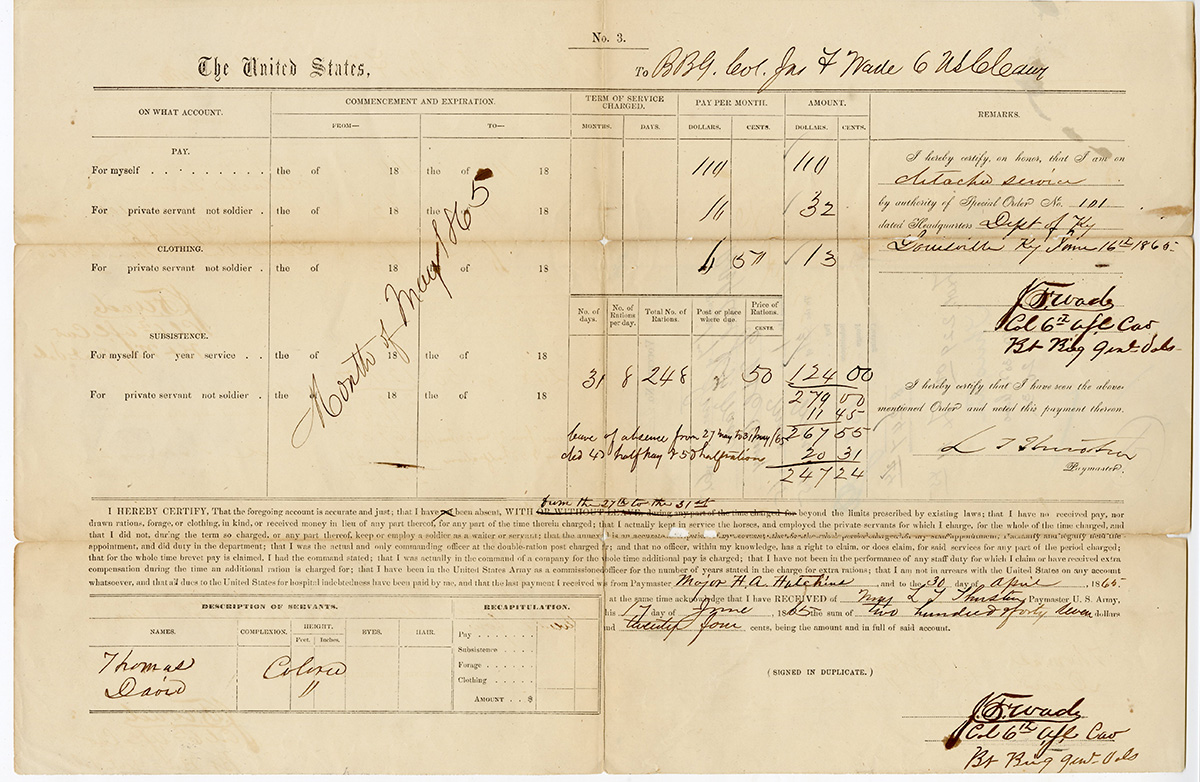 No. 3.
The United States, To BBG. Col. Jas F Wade 6 US C Cavy
ON WHAT ACCOUNT. COMMENCEMENT AND EXPIRATION. TERM OF SERVICE CHARGED. PAY PER MONTH. AMOUNT. REMARKS.
FROM— TO— MONTHS. DAYS. DOLLARS. CENTS. DOLLARS. CENTS.
PAY.
For myself . . . . . . . . . the of 18 the of 18 110 110
For private servant not soldier . the of 18 the 18 11 32
CLOTHING.
For private servant not soldier . the of 18 the of 18 6 57 13
Month of May 1865
No. of days. No. of Rations per day. Total No. of Rations. Post or place where due. Price of Rations. CENTS.
SUBSISTENCE.
For myself for year service . . the of 18 the of 18
31 8 248 50 124 00
For private servant not soldier . the of 18 the of 18 279 00
11 45
leave of absence from 27 May to 31 May/65 267 55
ded 4d half pay & 5d half rations 20 31
247 24
I hereby certify, on honor, that I am on
detached service
by authority of Special Order No. 101
dated Headquarters Dept of Ky
Louisville Ky June 16th 1865
J. F. Wade
Col 6th US C Cav
Bt Brig Genl Vols
I hereby certify that I have seen the above-
mentioned Order and noted this payment thereon.
L T Thruston
Paymaster.
from the 27th to the 31st
I HEREBY CERTIFY, That the foregoing account is accurate and just; that I have been absent, WITH OR WITHOUT LEAVE, during any part of the time charged for beyond the limits prescribed by existing laws; that I have no received pay, nor
drawn rations, forage, or clothing, in kind, or received money in lieu of any part thereof, for any part of the time therein charged; that I actually kept in service the horses, and employed the private servants for which I charge, for the whole of the time charged, and
that I did not, during the term so charged, or any part thereof, keep or employ a soldier as a waiter or servant; that the
appointment, and did duty in the department; that I was the actual and only commanding officer at the double-ration post charged ; and that no officer, within my knowledge, has a right to claim, or does claim, for said services for any part of the period charged;
that for the whole time brevet pay is claimed, I had the command stated; that I was actually in the command of a company for the time additional pay is charged; that I have not been in the performance of any staff duty for which I claim or have received extra
compensation during the time an additional ration is charged for; that I have been in the United States Army as a commissioned officer for the number of years stated in the charge for extra rations; that I am not in arrears with the United States on any account
whatsoever, and that all dues to the United States for hospital indebtedness have been paid by me, and that the last payment I received was from Paymaster Major H. A. Hutchins and to the 30 day of April , 1865
at the same time acknowledge that I have RECEIVED of Maj L T Thruston Paymaster U. S. Army,
this 17 day of June , 1865 the sum of two hundred forty seven dollars
and twenty four cents, being the amount and in full of said account.
DESCRIPTION OF SERVANTS. RECAPITULATION.
NAMES. COMPLEXION. HEIGHT, Feet. Inches. EYES. HAIR.
Thomas Colored
David "
Pay . . . . . .
Subsistence . . . .
Forage . . . . .
Clothing . . . . .
AMOUNT . . $
(SIGNED IN DUPLICATE.)
J. F. Wade
Col 6th US C Cav
Bt Brig Genl Vols